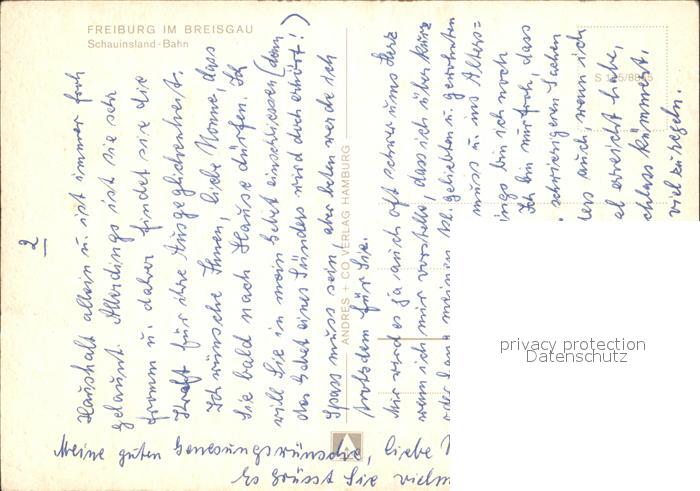 FREIBURG IM BREISGAU
Schauinsland-Bahn
S 125/8845
ANDRES + CO VERLAG HAMBURG
2
Haushalt allein u. ist immer froh
gelaunt. Allerdings ist sie sehr
fromm u. daher findet sie die
Kraft für ihre Ausgeglichenheit.
Ich wünsche Ihnen, liebe Nonne, dass
Sie bald nach Hause dürfen. Ich
will Sie in mein Gebet einschliessen (denn
das Gebet eines Sünders wird doch erhört!)
Spass muss sein, aber beten werde ich
trotzdem für Sie.
Mir wird es ja auch oft schwer ums Herz
wenn ich mir vorstelle, dass ich über kurz
oder lang meinen geliebten u. gewohnten
muss u. ins Alters=
ings bin ich noch
Ich bin nur froh, dass
schwierigeren Sachen
ders auch, wenn ich
el erreicht habe,
schluss kümmert.
viel zu regeln.
Meine guten Genesungswünsche, liebe
Es grüsst Sie vielm
privacy protection
Datenschutz